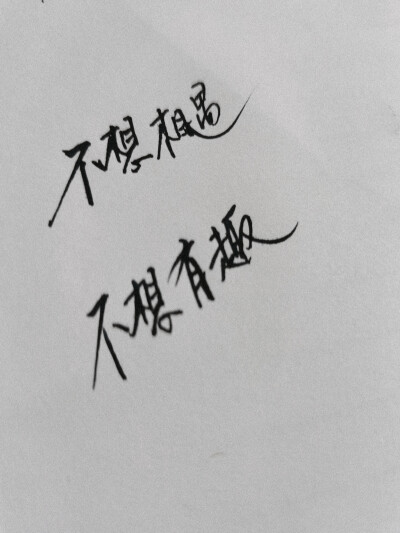 不想相遇
不想有趣